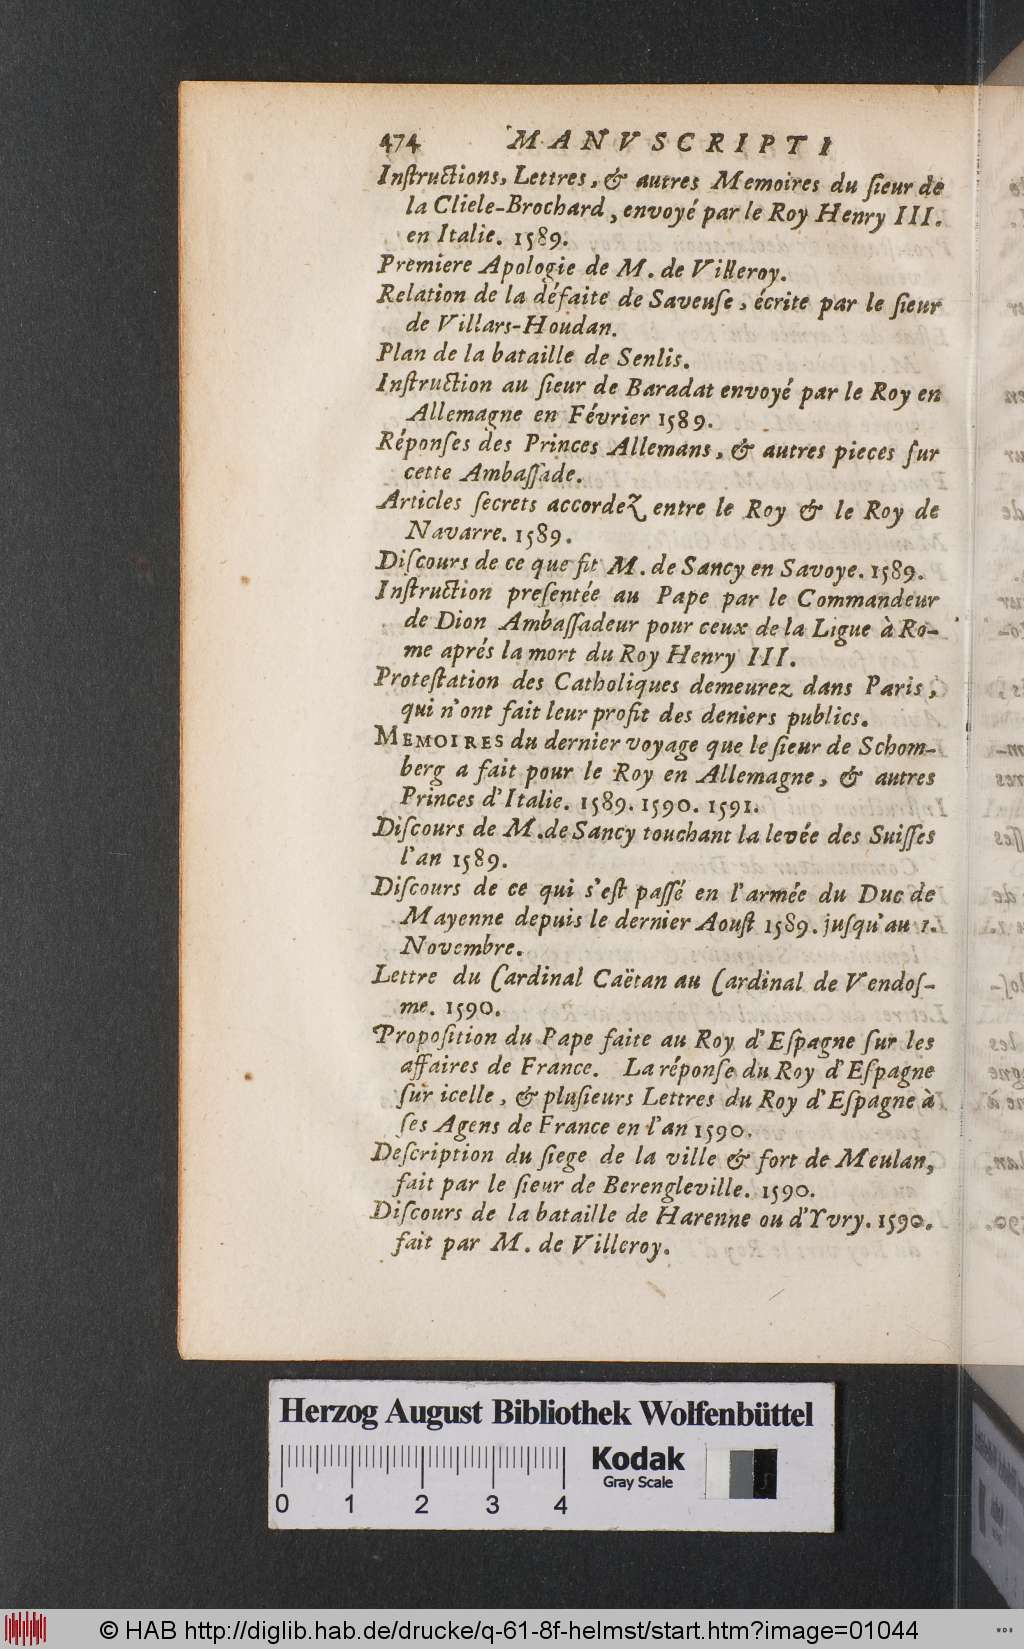 474 MANVSCRIPTI
Inſtructions, Lettres, & autres Memoires du ſieur de
la Cliele-Brochard, envoyé par le Roy Henry III.
en Italie. 1589.
Premiere Apologie de M. de Villeroy.
Relation de la défaite de Saveuſe, écrite par le ſieur
de Villars-Houdan.
Plan de la bataille de Senlis.
Inſtruction au ſieur de Baradat envoyé par le Roy en
Allemagne en Février 1589.
Réponſes des Princes Allemans, & autres pieces ſur
cette Ambaſſade.
Articles ſecrets accordez entre le Roy & le Roy de
Navarre. 1589.
Diſcours de ce que fit M. de Sancy en Savoye. 1589.
Inſtruction preſentée au Pape par le Commandeur
de Dion Ambaſſadeur pour ceux de la Ligue à Ro-
me aprés la mort du Roy Henry III.
Proteſtation des Catholiques demeurez dans Paris,
qui n'ont fait leur profit des deniers publics.
MEMOIRES du dernier voyage que le ſieur de Schom-
berg a fait pour le Roy en Allemagne, & autres
Princes d'Italie. 1589. 1590. 1591.
Diſcours de M. de Sancy touchant la levée des Suiſſes
l'an 1589.
Diſcours de ce qui s'eſt paſſé en l'armée du Duc de
Mayenne depuis le dernier Aouſt 1589. juſqu'au 1.
Novembre.
Lettre du Cardinal Caëtan au Cardinal de Vendoſ-
me. 1590.
Propoſition du Pape faite au Roy d'Eſpagne ſur les
affaires de France. La réponſe du Roy d'Eſpagne
ſur icelle, & pluſieurs Lettres du Roy d'Eſpagne à
ſes Agens de France en l'an 1590.
Deſcription du ſiege de la ville & fort de Meulan,
fait par le ſieur de Berengleville. 1590.
Diſcours de la bataille de Harenne ou d'Yvry. 1590.
fait par M. de Villeroy.
Herzog August Bibliothek Wolfenbüttel
Kodak
Gray Scale
0 1 2 3 4
© HAB http://diglib.hab.de/drucke/q-61-8f-helmst/start.htm?image=01044